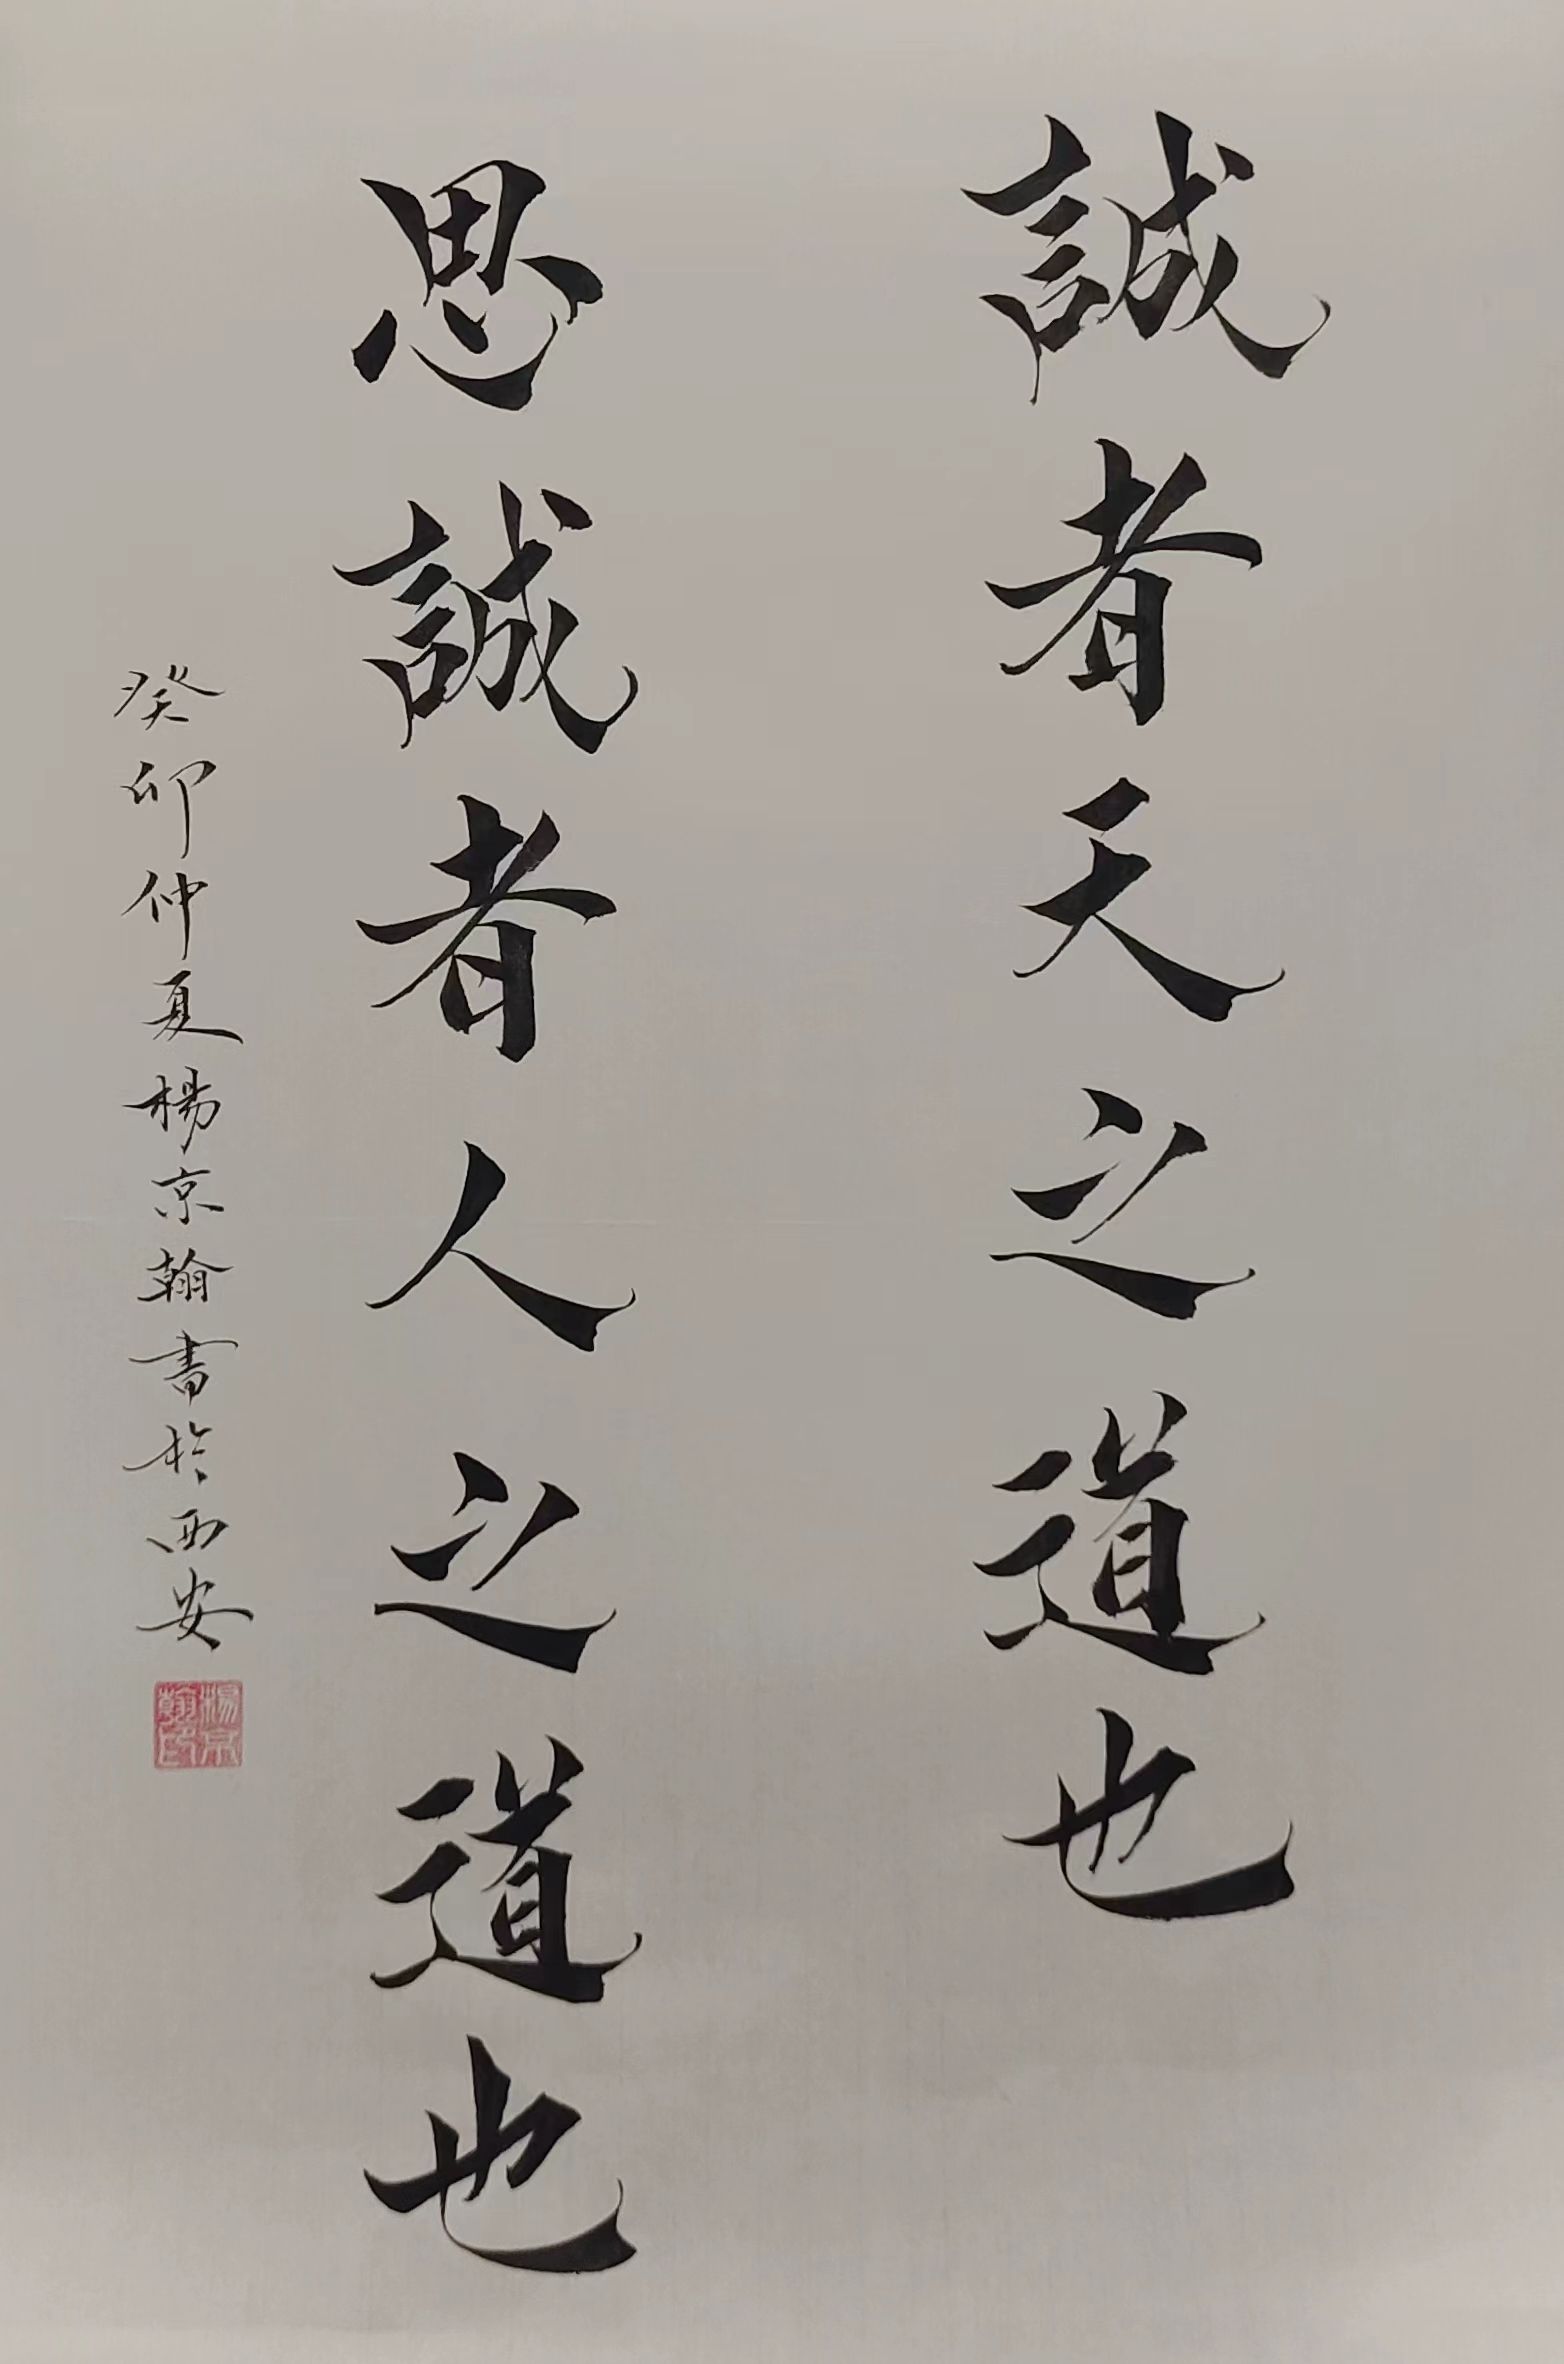 誠者天之道也
思誠者人之道也
癸卯仲夏楊京翰書於西安
楊京翰印